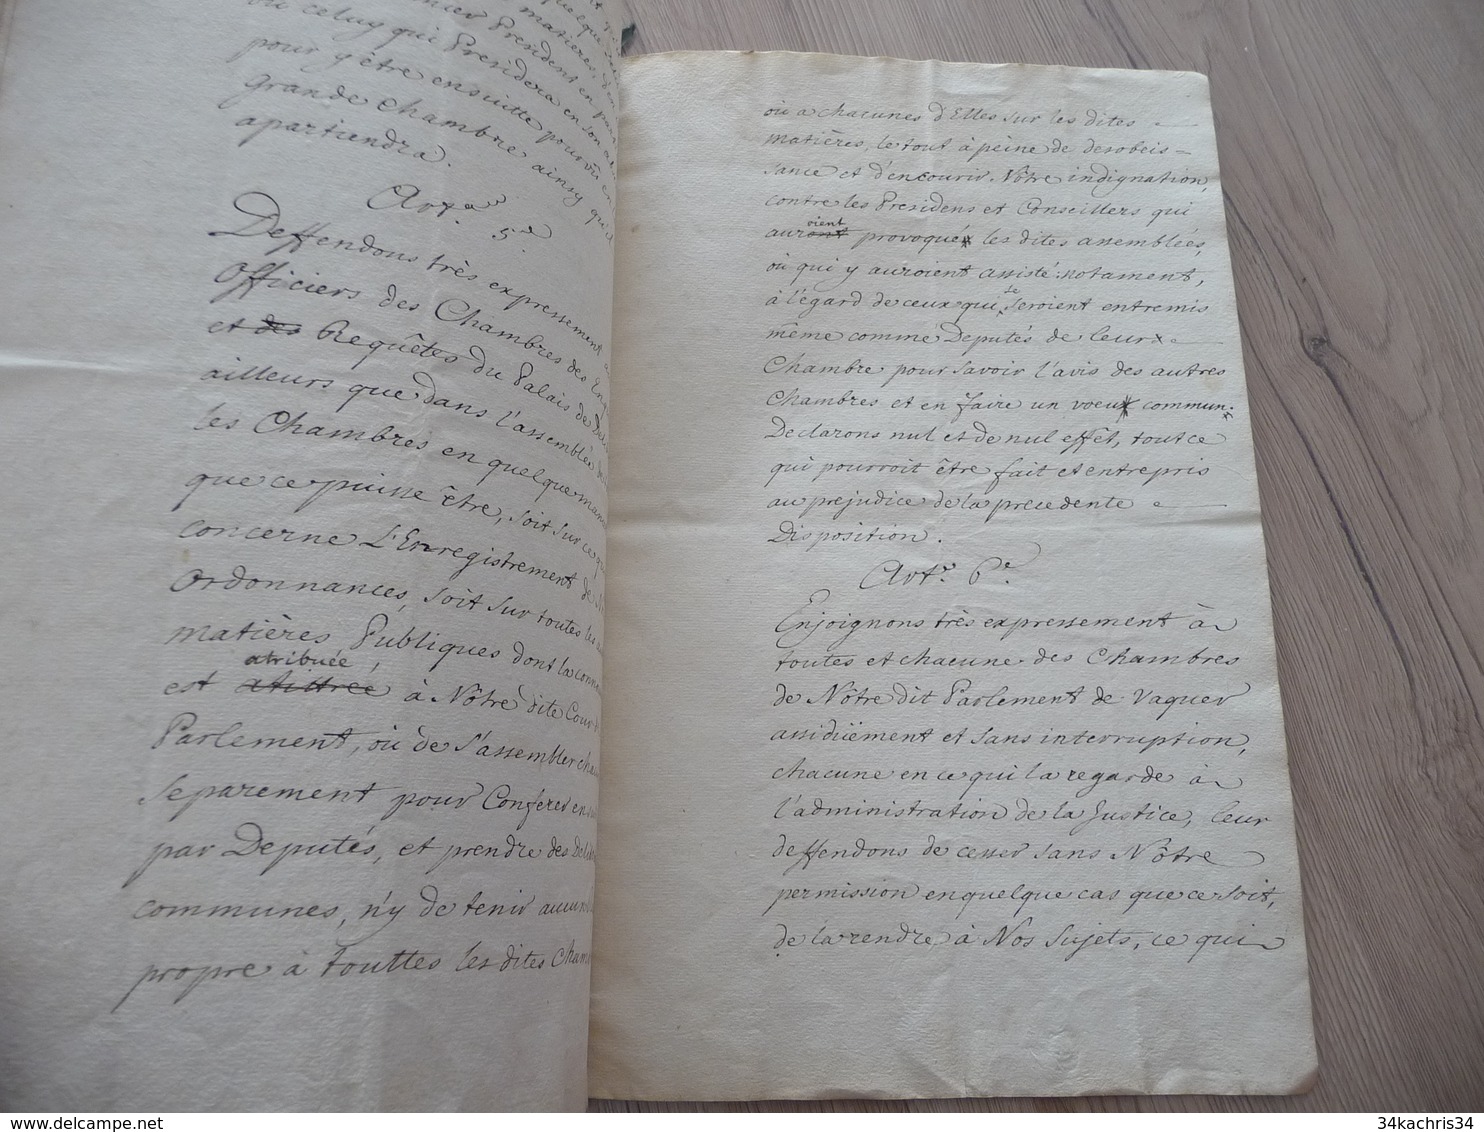 premier President en
ou celuy qui Presidera en son
pour y être ensuitte pourvû
grande Chambre ainsy qu'il
apartiendra.
Art.
5.e
Deffendons très expressement
Officiers des Chambres des
et des Requêtes du Palais de
ailleurs que dans l'assemblée
les Chambres en quelque
que ce puisse être, soit sur ce
concerne L'Enregistrement de
Ordonnances, soit sur toutes les
matières Publiques dont la
atribuée,
est à Nôtre dite Cour
Parlement, où de s'assembler
separement pour Conferer
par Deputés, et prendre des
communes, n'y de tenir
propre à touttes les dites
où a chacunes d'Elles sur les dites
matières, le tout à peine de desobeis=
sance et d'encourir Nôtre indignation,
contre les Presidens et Conseillers qui
oient
auront provoqué les dites assemblées,
où qui y auroient assisté: notament,
se
à l'égard de ceux qui seroient entremis
même comme Deputés de leur
Chambre pour savoir l'avis des autres
Chambres et en faire un voeu commun.
Declarons nul et de nul effêt, tout ce
qui pourroit être fait et entrepris
au prejudice de la precedente
Disposition.
Art. 6.e
Enjoignons très expressement à
toutes et chacune des Chambres
de Nôtre dit Parlement de vaquer
assiduëment et sans interruption,
chacune en ce qui la regarde à
l'administration de la Justice, leur
deffendons de cesser sans Nôtre
permission en quelque cas que ce soit,
de la rendre à Nos Sujets, ce qui
34kachris34